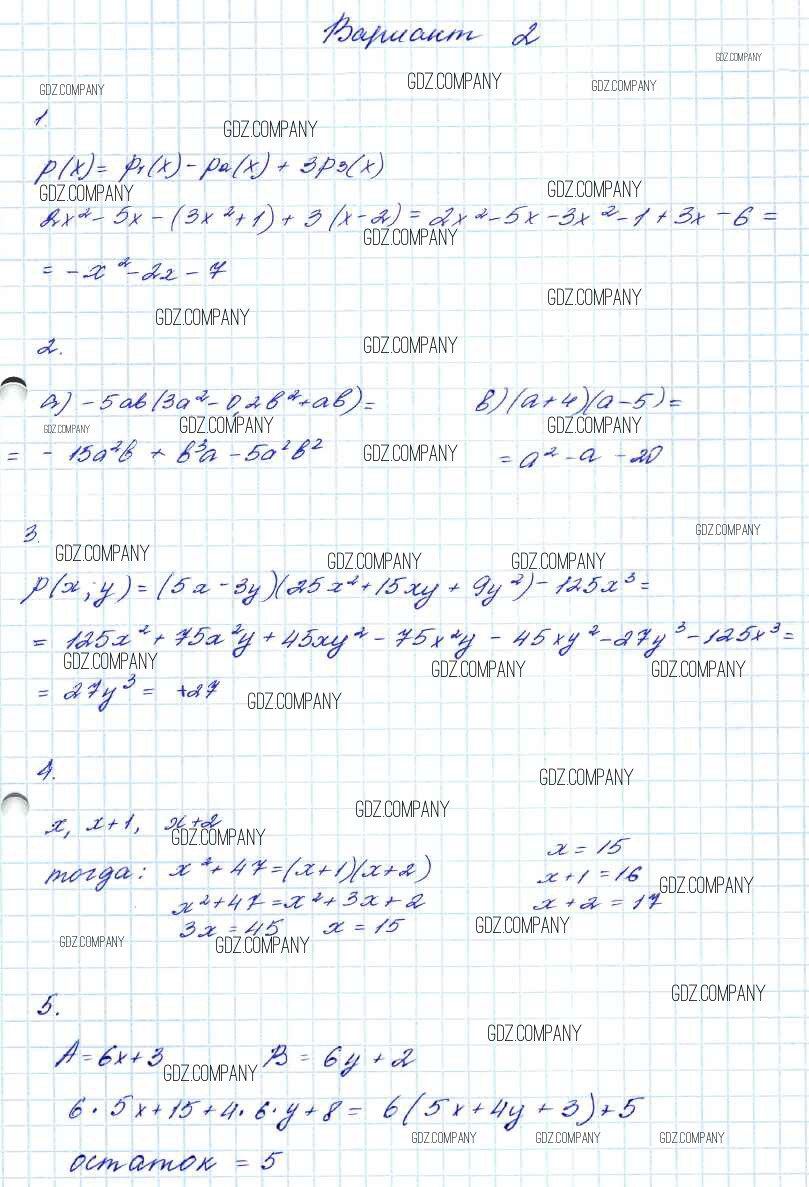 Вариант 2
GDZ.COMPANY
GDZ.COMPANY GDZ.COMPANY GDZ.COMPANY
1.
GDZ.COMPANY
P(x) = P1(x) - P2(x) + 3P3(x)
GDZ.COMPANY GDZ.COMPANY
2x² - 5x - (3x² + 1) + 3(x - 2) = 2x² - 5x - 3x² - 1 + 3x - 6 =
GDZ.COMPANY
= -x² - 2x - 7
GDZ.COMPANY
GDZ.COMPANY
2. GDZ.COMPANY
а) -5ab(3a² - 0,2b² + ab) = в) (a + 4)(a - 5) =
GDZ.COMPANY GDZ.COMPANY GDZ.COMPANY
= - 15a²b + b³a - 5a²b² GDZ.COMPANY = a² - a - 20
3. GDZ.COMPANY
GDZ.COMPANY GDZ.COMPANY GDZ.COMPANY
P(x;y) = (5x - 3y)(25x² + 15xy + 9y²) - 125x³ =
= 125x² + 75x²y + 45xy² - 75x²y - 45xy² - 27y³ - 125x³ =
GDZ.COMPANY GDZ.COMPANY GDZ.COMPANY
= 27y³ = +27 GDZ.COMPANY
4.
GDZ.COMPANY
GDZ.COMPANY
x, x+1, x+2
GDZ.COMPANY
тогда: x² + 47 = (x+1)(x+2) x = 15
x + 1 = 16 GDZ.COMPANY
x² + 47 = x² + 3x + 2 x + 2 = 17
3x = 45 x = 15 GDZ.COMPANY
GDZ.COMPANY GDZ.COMPANY
5. GDZ.COMPANY
GDZ.COMPANY
A = 6x + 3 B = 6y + 2
GDZ.COMPANY
6 · 5x + 15 + 4 · 6 · y + 8 = 6(5x + 4y + 3) + 5
GDZ.COMPANY GDZ.COMPANY GDZ.COMPANY
остаток = 5